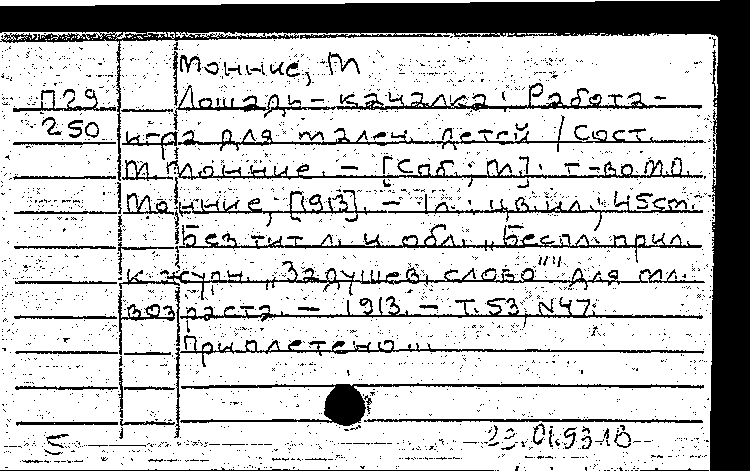 Монние, М
П29 Лошадь-качалка: Работа-
250 игра для мален. детей / Сост.
М. Монние. – [Спб.; М]: т-во М.О.
Монние, [1913]. – 1л.: цв.ил.; 45см.
Без тит л. и обл. „Беспл. прил.
к журн. „Задушев. слово"" для мл.
возраста. – 1913. – Т.53, N47.
Приплетено...
5